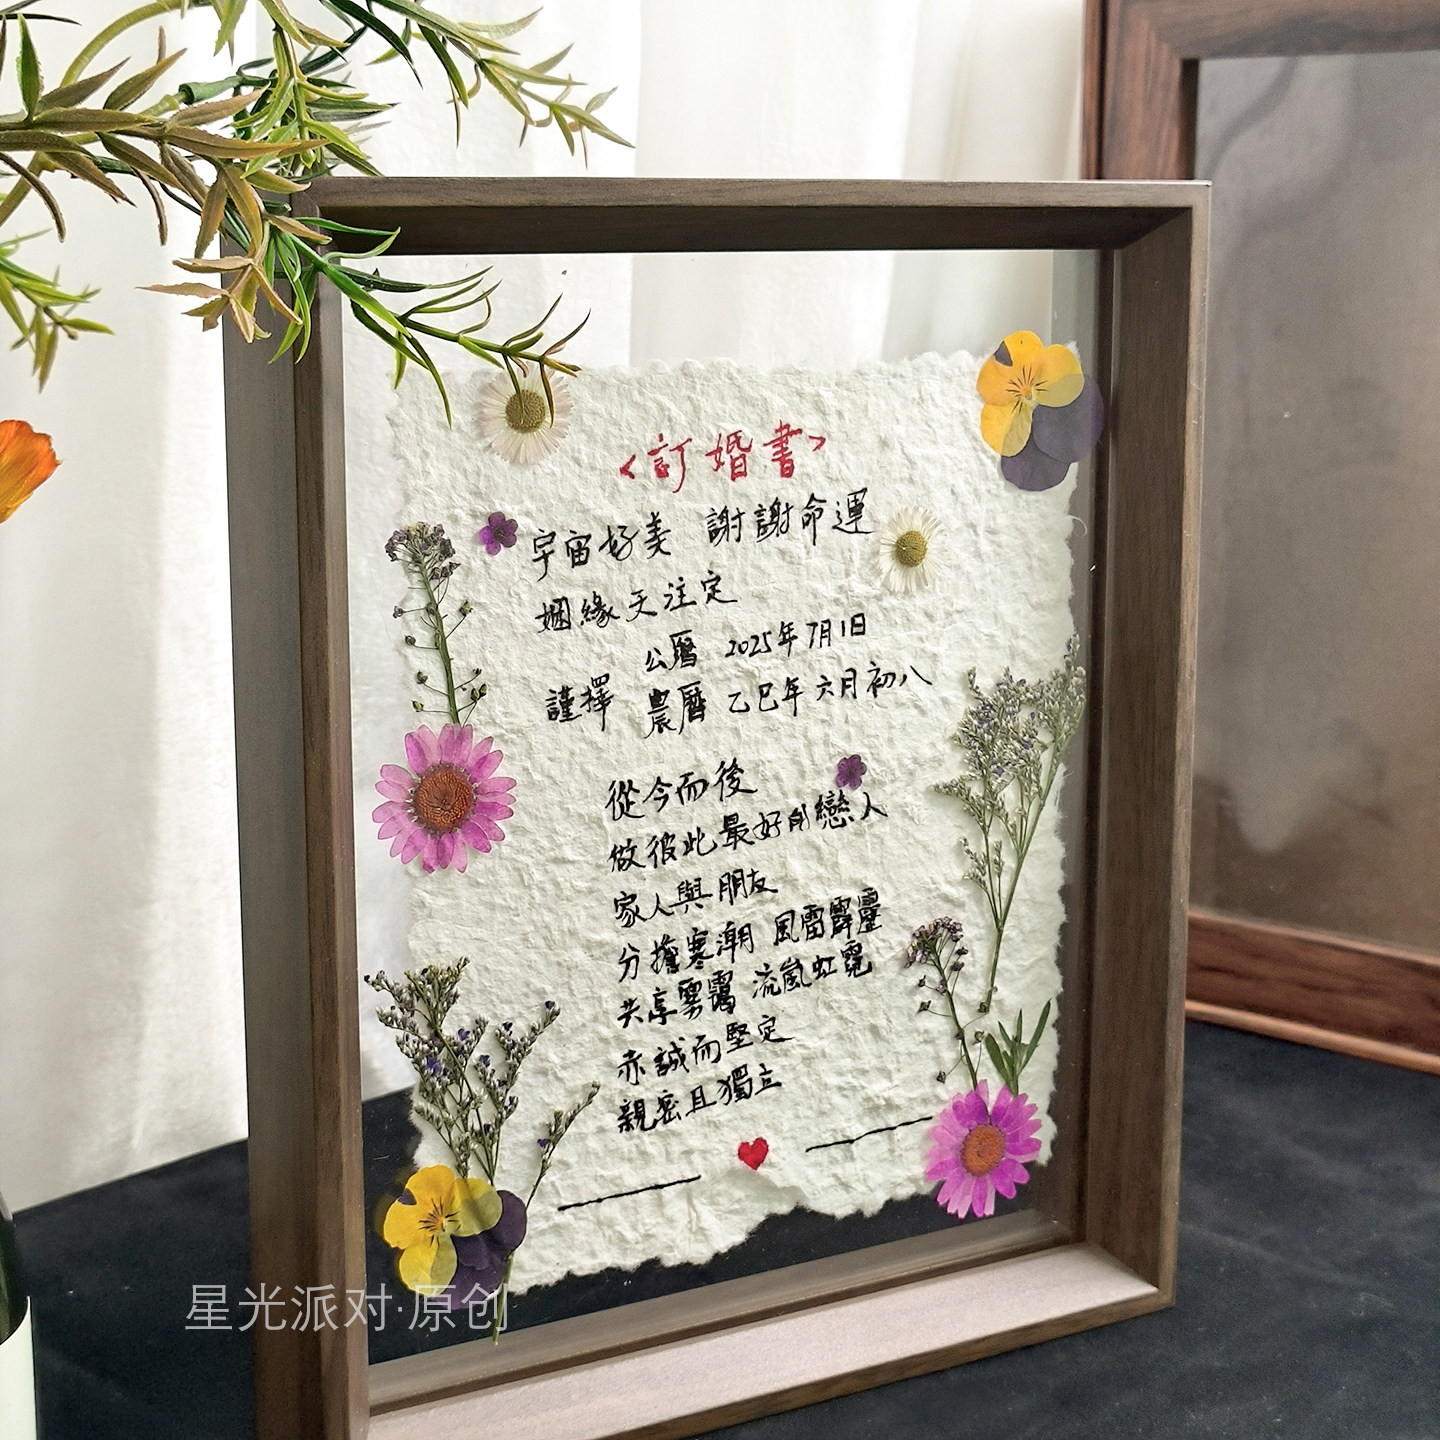 <訂婚書>
宇宙好美 謝謝命運
姻緣天注定
公曆 2025年7月1日
謹擇 農曆 乙巳年六月初八
從今而後
做彼此最好的戀人
家人與朋友
分擔寒潮 風雷霹靂
共享霧靄 流嵐虹霓
赤誠而堅定
親密且獨立
星光派对·原创